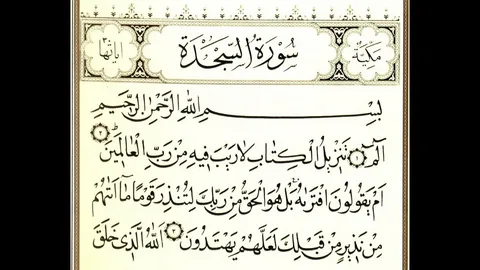 مكية سورة السجدة آياتها ٣٠
بسم الله الرحمن الرحيم
الٓمٓ ۝١ تَنْزِيلُ الْكِتَابِ لَا رَيْبَ فِيهِ مِنْ رَبِّ الْعَالَمِينَ ۝٢
اَمْ يَقُولُونَ افْتَرٰيهُ بَلْ هُوَ الْحَقُّ مِنْ رَبِّكَ لِتُنْذِرَ قَوْمًا مَٓا اَتٰيهُمْ
مِنْ نَذِيرٍ مِنْ قَبْلِكَ لَعَلَّهُمْ يَهْتَدُونَ ۝٣ اَللّٰهُ الَّذِي خَلَقَ